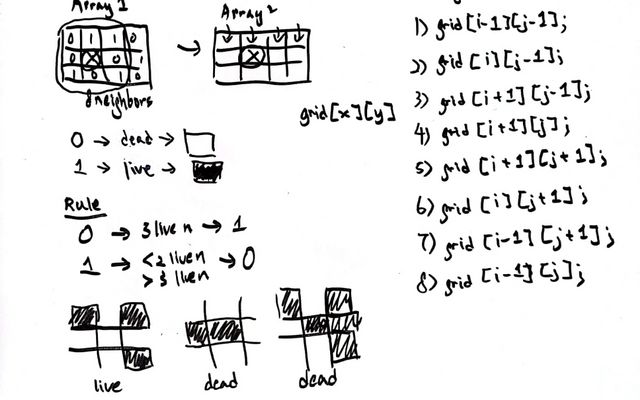 Array 1
Array 2
0 1 1 0
0 X 0 1
1 0 1 1
X
8 neighbors
grid[x][y]
0 → dead →
1 → live →
Rule
0 → 3 live n → 1
1 → <2 live n → 0
>3 live n
live
dead
dead
1) grid[i-1][j-1];
2) grid[i][j-1];
3) grid[i+1][j-1];
4) grid[i+1][j];
5) grid[i+1][j+1];
6) grid[i][j+1];
7) grid[i-1][j+1];
8) grid[i-1][j];